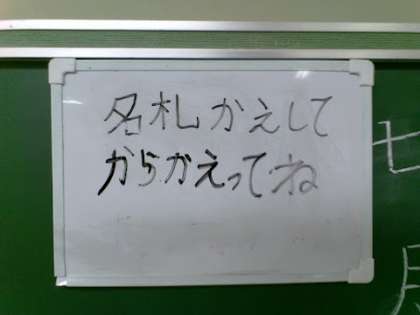 名札かえして
からかえってね
七